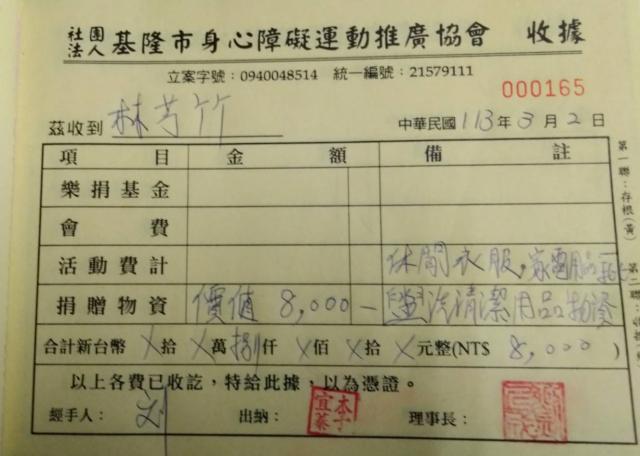 社團法人 基隆市身心障礙運動推廣協會 收據
立案字號：0940048514 統一編號：21579111
000165
茲收到 林芩竹 中華民國 113 年 3 月 2 日
項目 金額 備註
樂捐基金
會費
活動費計 休閒衣服，家電用品
捐贈物資 價值 8,000 — 洗清潔用品物資
合計新台幣 X 拾 X 萬 捌 仟 X 佰 X 拾 X 元整(NT$ 8,000 )
以上各費已收訖，特給此據，以為憑證。
經手人： 劉 出納： 理事長：
第一聯：存根(黃)
第二聯：收